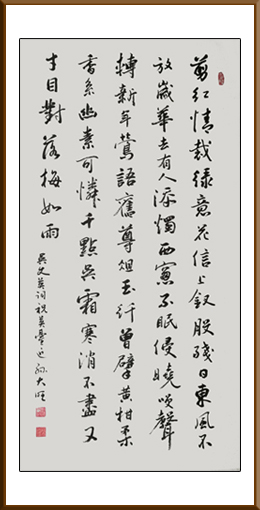 剪紅情裁緑意花信上釵股殘日東風不
放歲華去有人添燭西窗不眠侵曉笑聲
轉新年鶯語舊尊俎玉纤曾擘黄柑柔
香系幽素可憐千點吳霜寒消不盡又
相對落梅如雨
吳文英詞祝英臺近 孫大旺